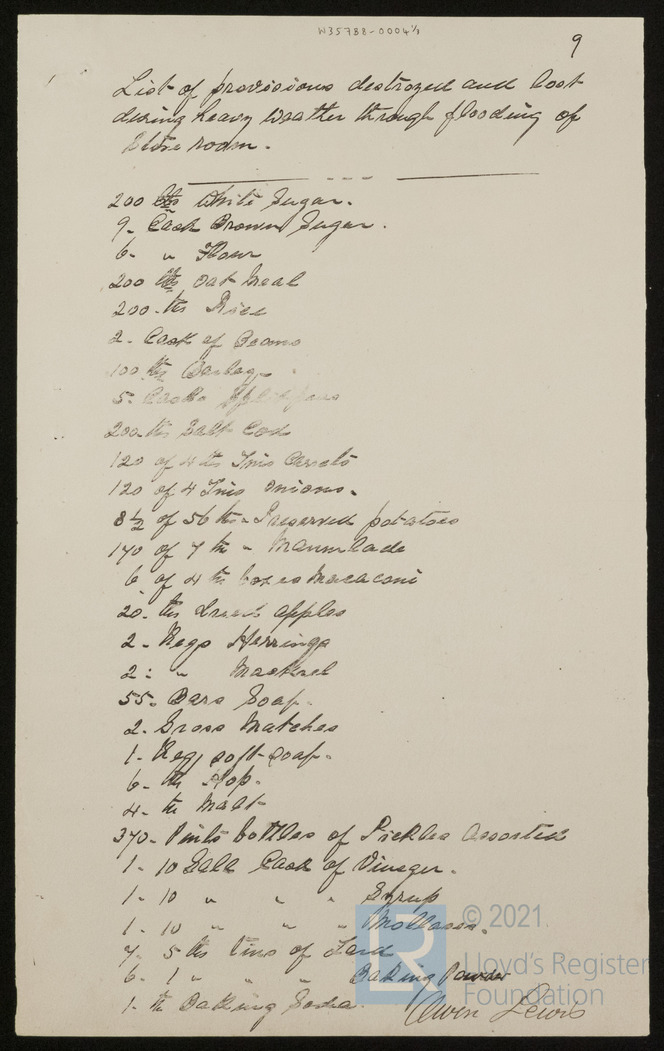 W35788-0004 1/1
9
List of provisions destroyed and lost
during heavy weather through flooding of
Store room.
200 lbs White Sugar.
9. Cask Brown Sugar.
6. " Flour
200 lbs Oat Meal
200. lbs Rice
2. Cask of Beans
100 lbs
5. Casks
200 lbs Salt Cod
120 of 4 lbs Tins Carrots
120 of 4 Tins Onions.
8 1/2 of 56 lbs. Preserved potatoes
170 of 7 lb " Marmalade
6 of 4 lb boxes Macaconi
20. lbs dried apples
2. Kegs Herrings
2. " Mackrel
55. Bars Soap.
2. Gross Matches
1. Keg soft-soap.
6. lb Hop.
4. lb Malt
370. Pints bottles of Pickles Assorted
1. 10 Gall Cask of Vineger.
1. 10 " " " Syrup
1. 10 " " " Mollases.
7. 5 lbs tins of Lard
6. 1 " " " Baking Powder
1. lb Baking Soda.
Owen Lewis
© 2021
Lloyd's Register
Foundation
LR